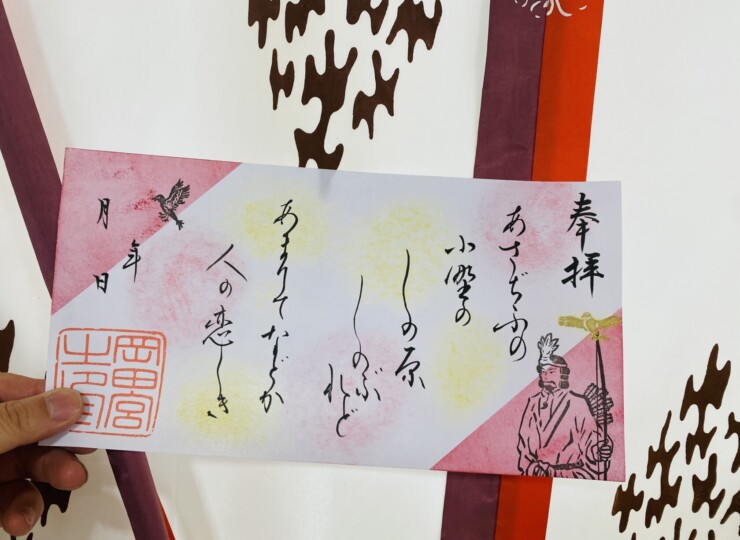 奉拝
あさぢふの
小野の
しの原
しのぶ
れど
あまりてなどか
人の恋しき
年
月
日
岡田宮
之印